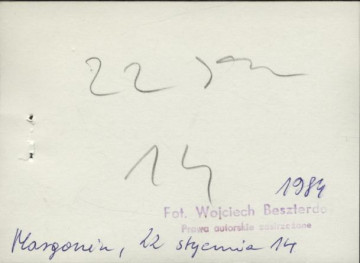 22 sty
14
1984
Fot. Wojciech Beszterda
Prawa autorskie zastrzeżone
Margonin, 22 stycznia 14